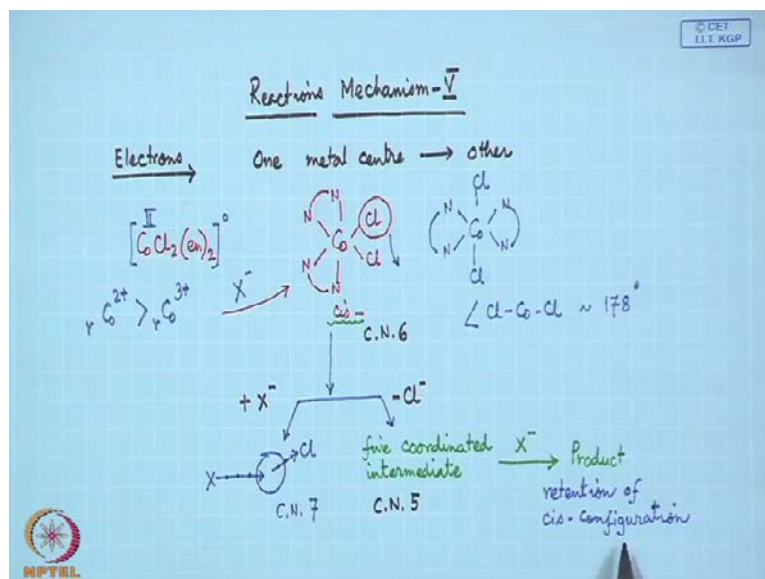 © CET
I.I.T. KGP
Reactions Mechanism-V
Electrons
One metal centre → other
[CoCl2(en)2]°
II
rCo2+ > rCo3+
X-
N N Cl
Co
N N Cl
cis-
C.N. 6
Cl
N N
Co
N N
Cl
∠ Cl-Co-Cl ~ 178°
+ X-
- Cl-
X → Cl
C.N. 7
five coordinated
intermediate
C.N. 5
X-
→ Product
retention of
cis-configuration
NPTEL